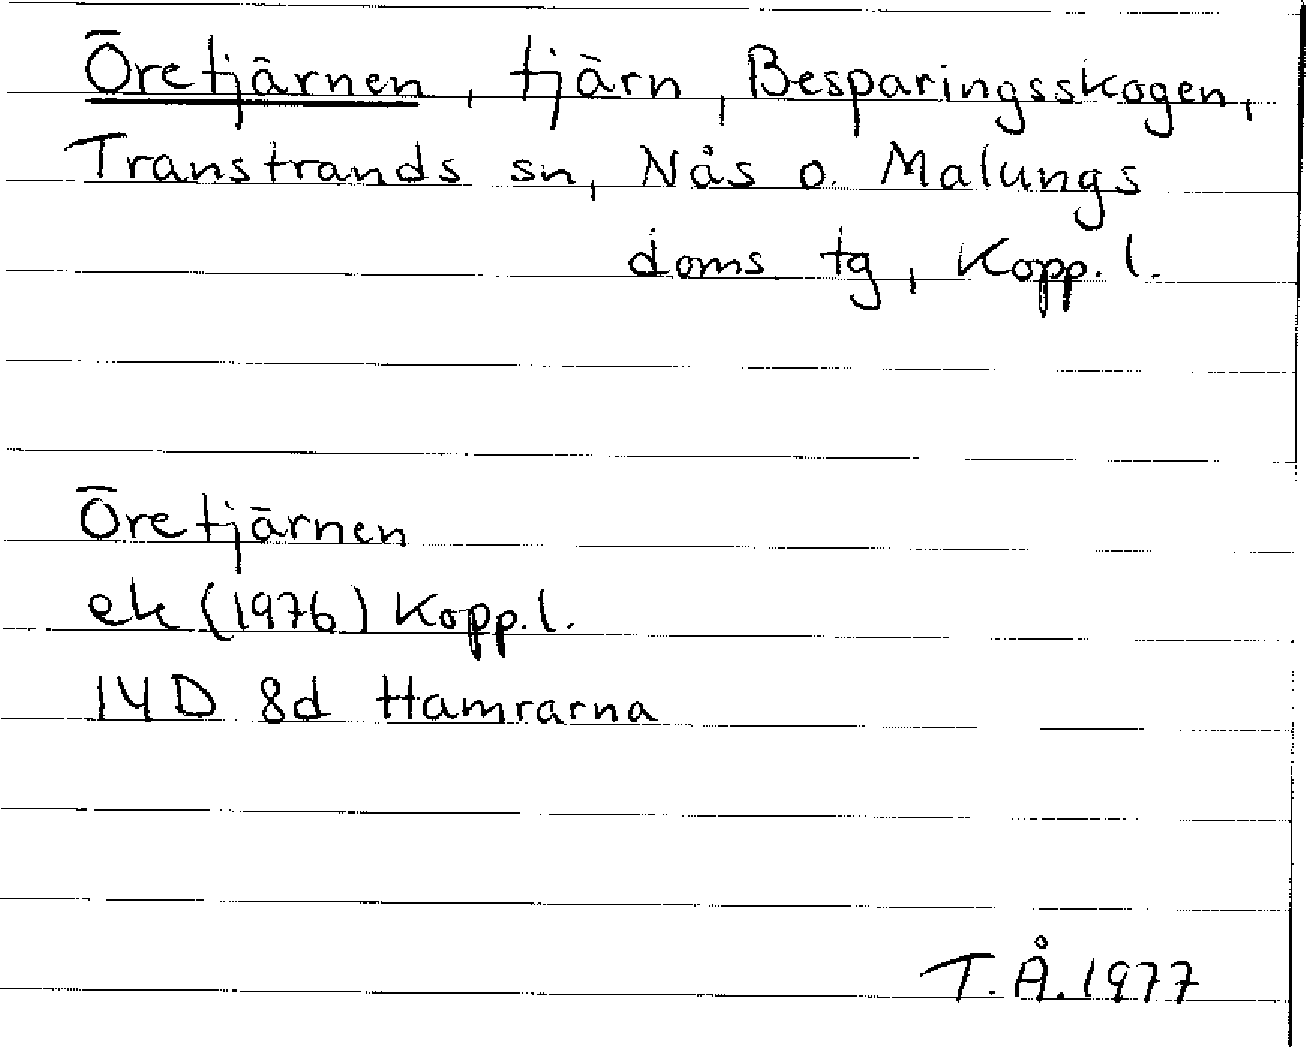 Öretjärnen, tjärn, Besparingsskogen,
Transtrands sn, Nås o. Malungs
doms tg, Kopp. l.
Öretjärnen
ek (1976) Kopp. l.
14D 8d Hamrarna
T.Å. 1977